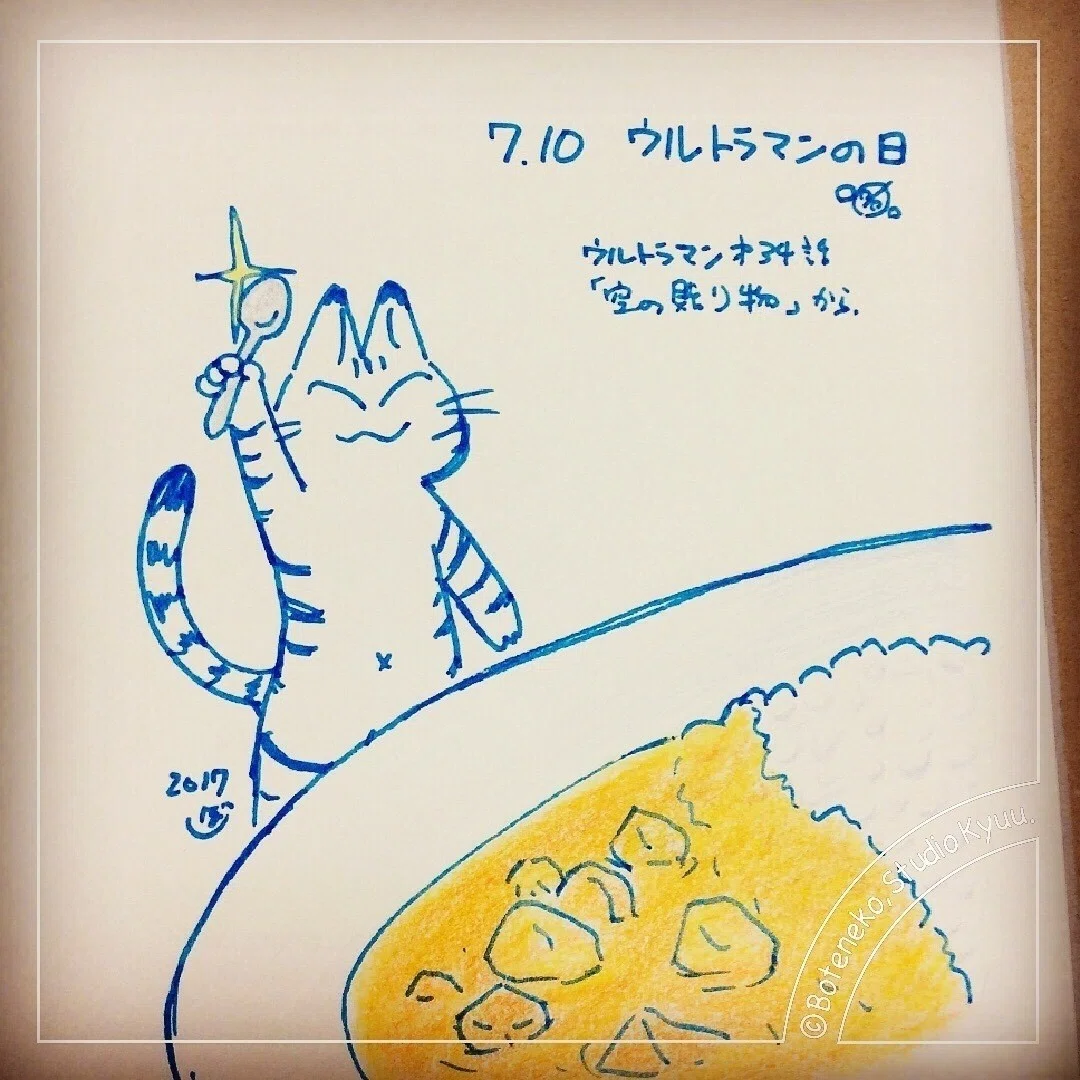 7.10 ウルトラマンの日
ウルトラマン才34話
「空の贈り物」から。
2017
©Boteneko, Studio Kyuu.